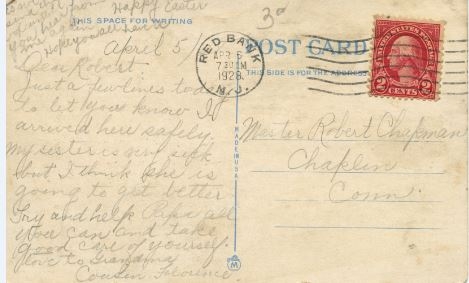 Happy Easter
Hope you all have a
THIS SPACE FOR WRITING
April 5
Dear Robert
Just a few lines today
to let you know I
arrived here safely
my sister is very sick
but I think she is
going to get better
Try and help Papa all
you can and take
good care of yourself.
love to Grandma
Cousin Florence.
3¢
RED BANK
APR 6
7 30 M
1928
N.J.
POST CARD
THIS SIDE IS FOR THE ADDRESS
UNITED STATES POSTAGE
2 CENTS 2
MADE IN U.S.A.
Master Robert Chapman
Chaplin
Conn.
M